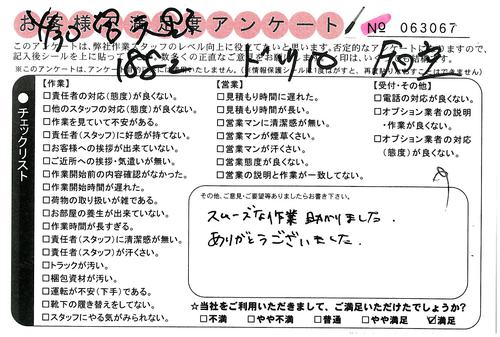 お客様ご満足度アンケート
№ 063067
このアンケートは、弊社作業スタッフのレベル向上に役立て
記入後シールを上に貼っ
※このアンケートは、アンケー
【作業】
□責任者の対応(態度)が良くない。
□他のスタッフの対応(態度)が良くない。
□作業を見ていて不安がある。
□責任者(スタッフ)に好感が持てない。
□お客様への挨拶が出来ていない。
□ご近所への挨拶・気遣いが無い。
□作業開始前の内容確認がなかった。
□作業開始時間が遅れた。
□荷物の取り扱いが雑である。
□お部屋の養生が出来ていない。
□作業時間が長すぎる。
□責任者(スタッフ)に清潔感が無い。
□責任者(スタッフ)が汗くさい。
□トラックが汚い。
□梱包資材が汚い。
□運転が不安(下手)である。
□靴下の履き替えをしてない。
□スタッフにやる気がみられない。
【営業】
□見積もり時間に遅れた。
□見積もり時間が長い。
□営業マンに清潔感が無い。
□営業マンが煙草くさい。
□営業マンが汗くさい。
□営業態度が良くない。
□営業の説明と作業が一致してない。
【受付・その他】
□電話の対応が良くない。
□オプション業者の説明
・作業が良くない。
□オプション業者の対応
(態度)が良くない。
●チェックリスト
その他、ご意見・ご要望等ありましたらお書き下さい。
スムーズな作業 助かりました.
ありがとうございました.
☆当社をご利用いただきまして、ご満足いただけたでしょうか?
□不満 □やや不満 □普通 □やや満足 ☑満足